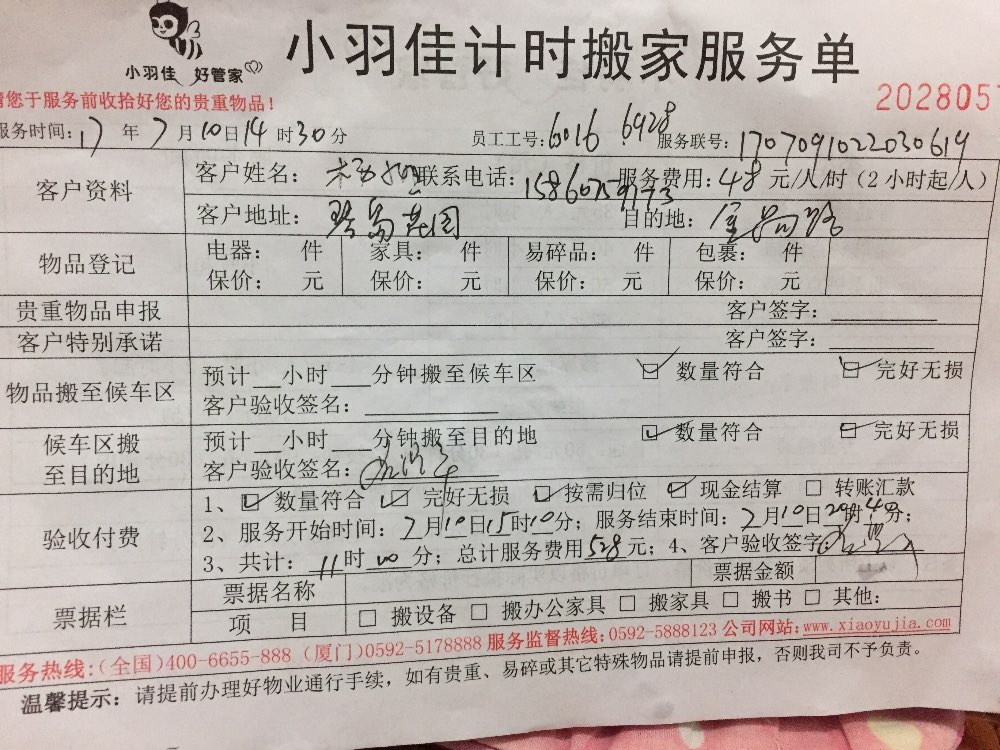 小羽佳 好管家
小羽佳计时搬家服务单
请您于服务前收拾好您的贵重物品！
2028057
服务时间：17年7月10日14时30分 员工工号：6016 6928 服务联号：1707091022030619
客户资料
客户姓名： 联系电话： 服务费用：48元/人/时（2小时起/人）
客户地址： 目的地：
物品登记
电器： 件 家具： 件 易碎品： 件 包裹： 件
保价： 元 保价： 元 保价： 元 保价： 元
贵重物品申报 客户签字：
客户特别承诺 客户签字：
物品搬至候车区
预计__小时___分钟搬至候车区 ☑ 数量符合 ☑ 完好无损
客户验收签名：
候车区搬
至目的地
预计__小时___分钟搬至目的地 ☑ 数量符合 ☑ 完好无损
客户验收签名：
验收付费
1、☑ 数量符合 ☑ 完好无损 ☑ 按需归位 ☑ 现金结算 □ 转账汇款
2、服务开始时间：7月10日15时10分；服务结束时间：7月10日20时40分；
3、共计：11时00分；总计服务费用528元；4、客户验收签字
票据栏
票据名称 票据金额
项 目 □ 搬设备 □ 搬办公家具 □ 搬家具 □ 搬书 □ 其他：
服务热线：(全国)400-6655-888 (厦门)0592-5178888 服务监督热线：0592-5888123 公司网站：www.xiaoyujia.com
温馨提示：请提前办理好物业通行手续，如有贵重、易碎或其它特殊物品请提前申报，否则我司不予负责。